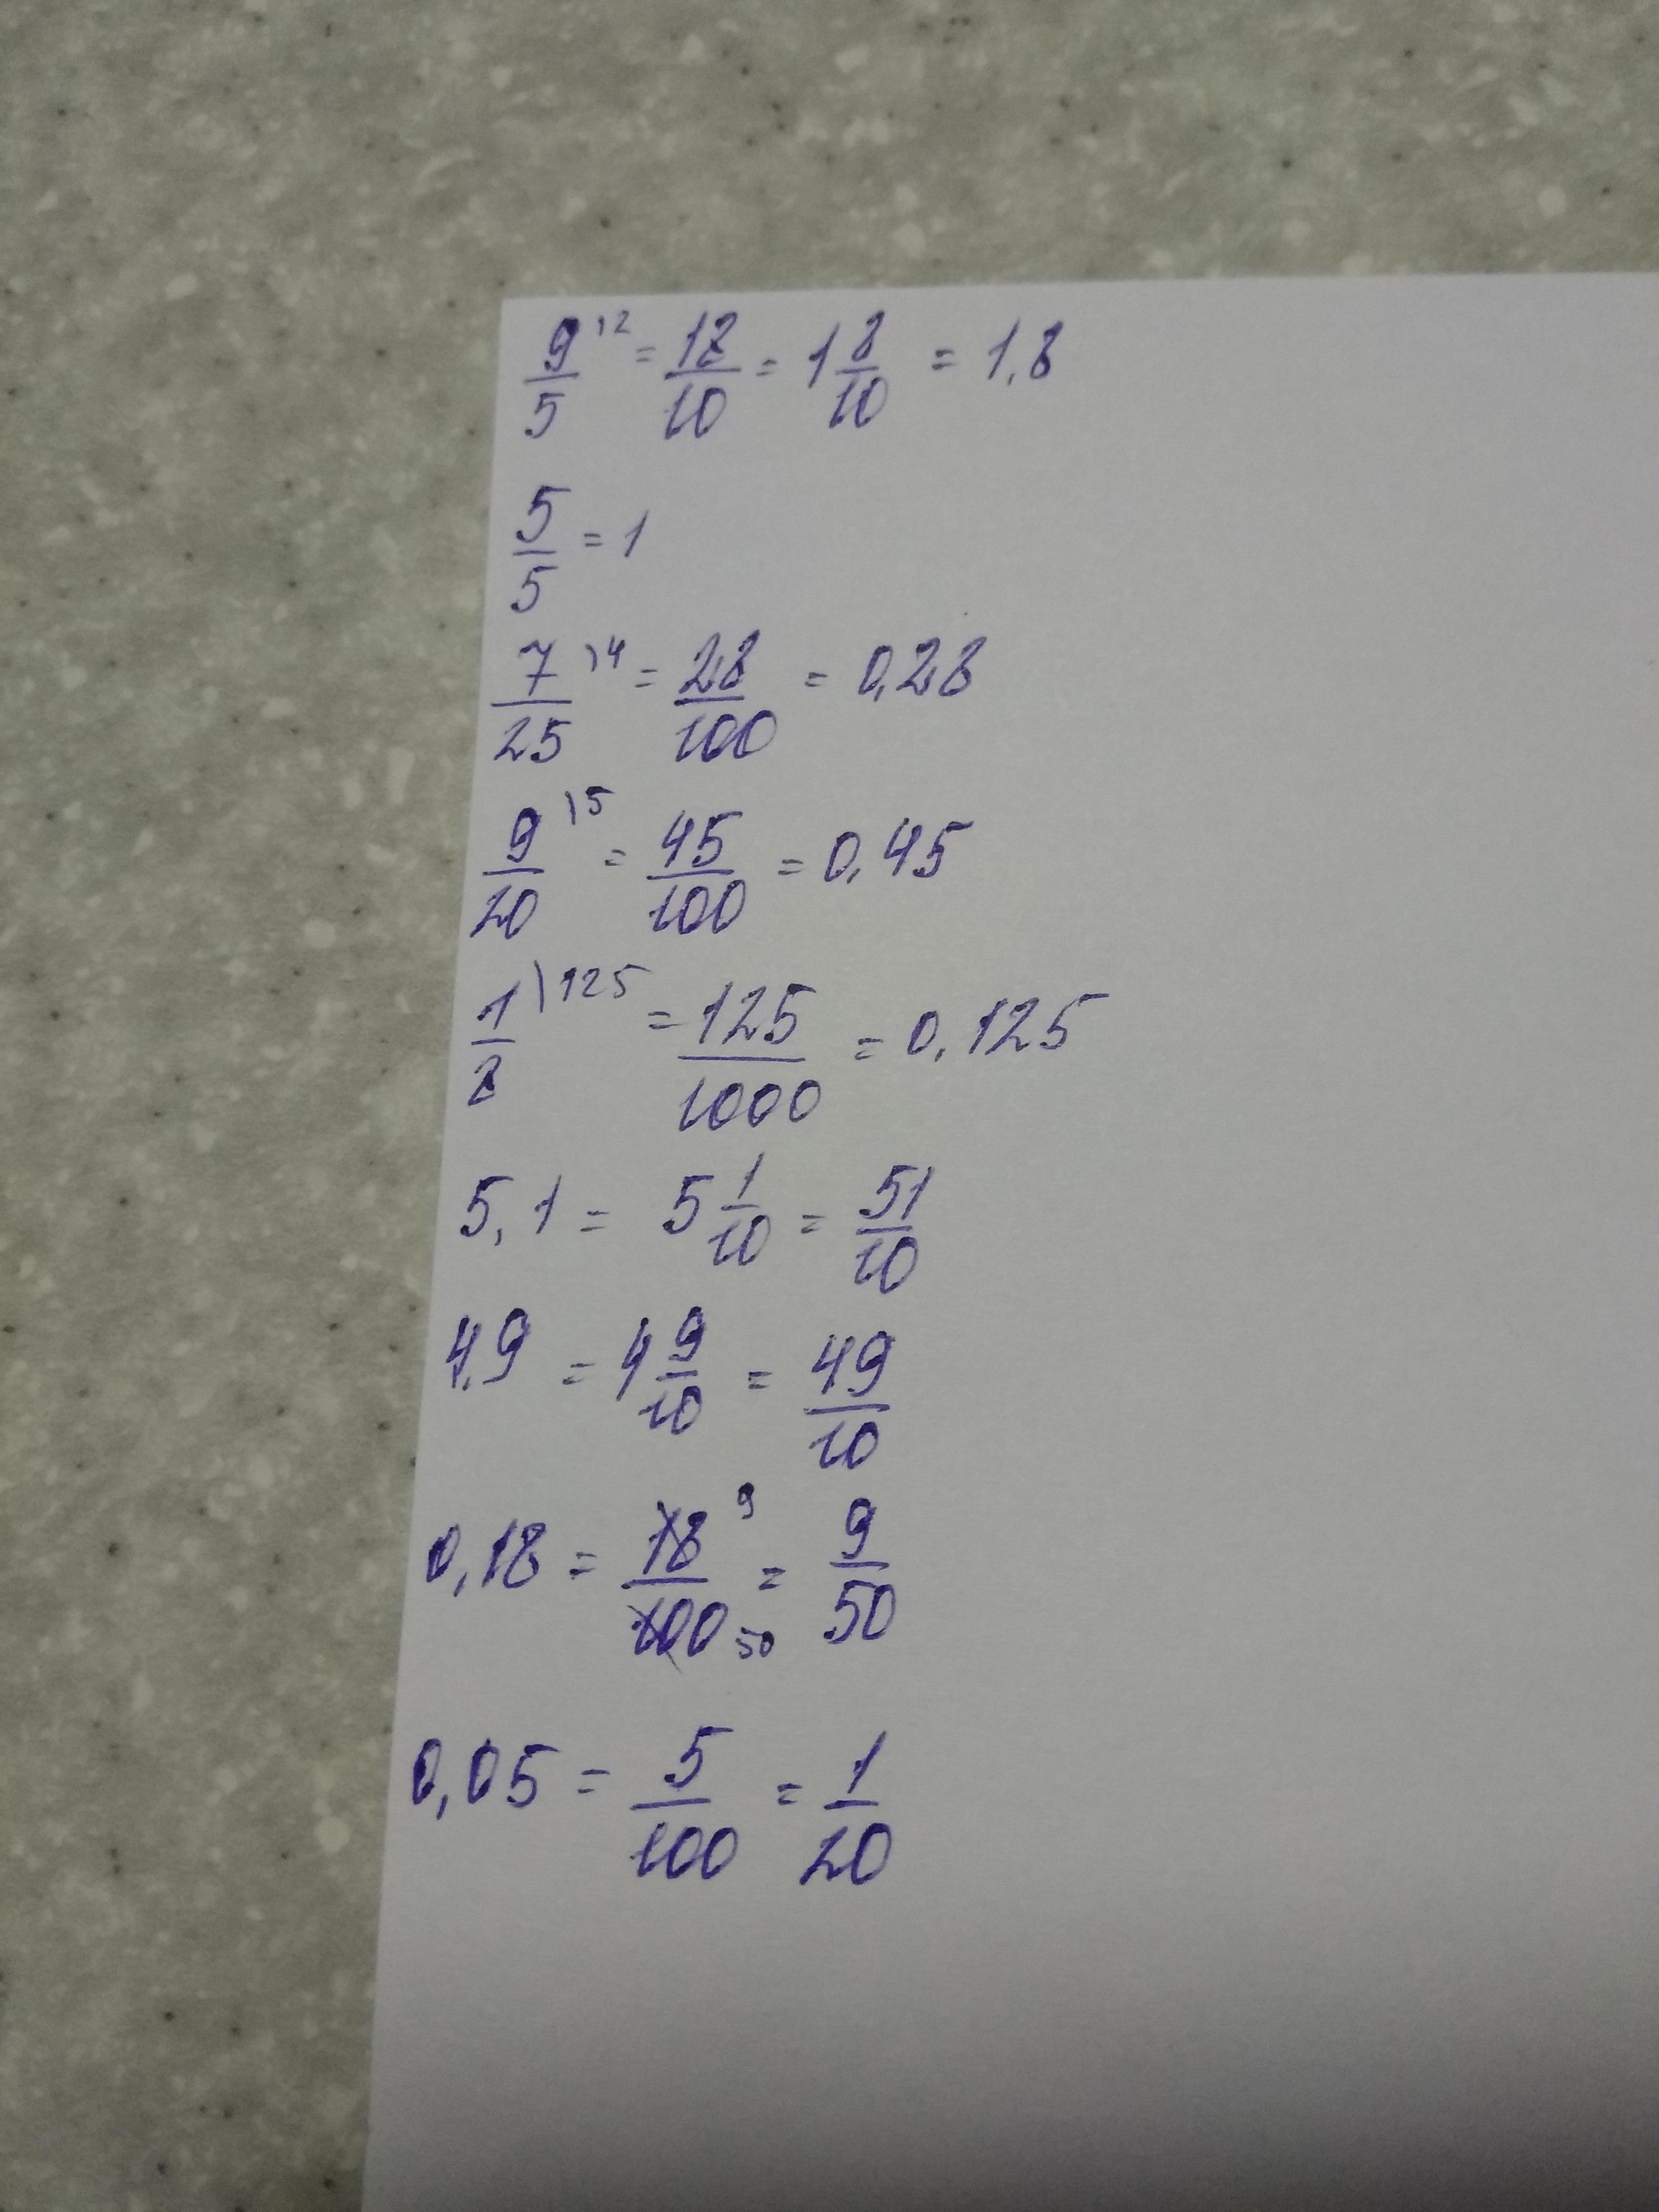 9/5 \2 = 18/10 = 1 8/10 = 1,8
5/5 = 1
7/25 \4 = 28/100 = 0,28
9/20 \5 = 45/100 = 0,45
1/8 \125 = 125/1000 = 0,125
5,1 = 5 1/10 = 51/10
4,9 = 4 9/10 = 49/10
0,18 = 18 9/100 50 = 9/50
0,05 = 5/100 = 1/20